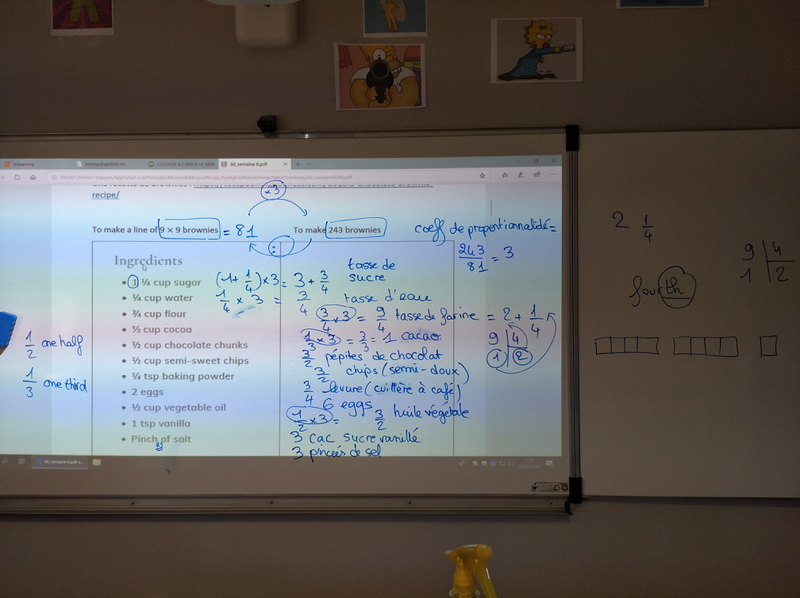 68_semaine 8.pdf
recipe/
×3
To make a line of 9 × 9 brownies = 81
To make 243 brownies
coeff de proportionnalité =
243/81 = 3
:
Ingredients
• 1 ¼ cup sugar
• ¼ cup water
• ¾ cup flour
• ⅓ cup cocoa
• ½ cup chocolate chunks
• ½ cup semi-sweet chips
• ¼ tsp baking powder
• 2 eggs
• ½ cup vegetable oil
• 1 tsp vanilla
• Pinch of salt
(1 + 1/4) × 3 = 3 + 3/4 tasse de sucre
1/4 × 3 = 3/4 tasse d'eau
3/4 × 3 = 9/4 tasse de farine = 2 + 1/4
1/3 × 3 = 3/3 = 1 cacao
3/2 pépites de chocolat
3/2 chips (semi-doux)
3/4 levure (cuillère à café)
6 eggs
1/2 × 3 = 3/2 huile végétale
3 cac sucre vanillé
3 pincées de sel
9 | 4
1 | 2
1/2 one half
1/3 one third
2 1/4
fourth
9 | 4
1 | 2